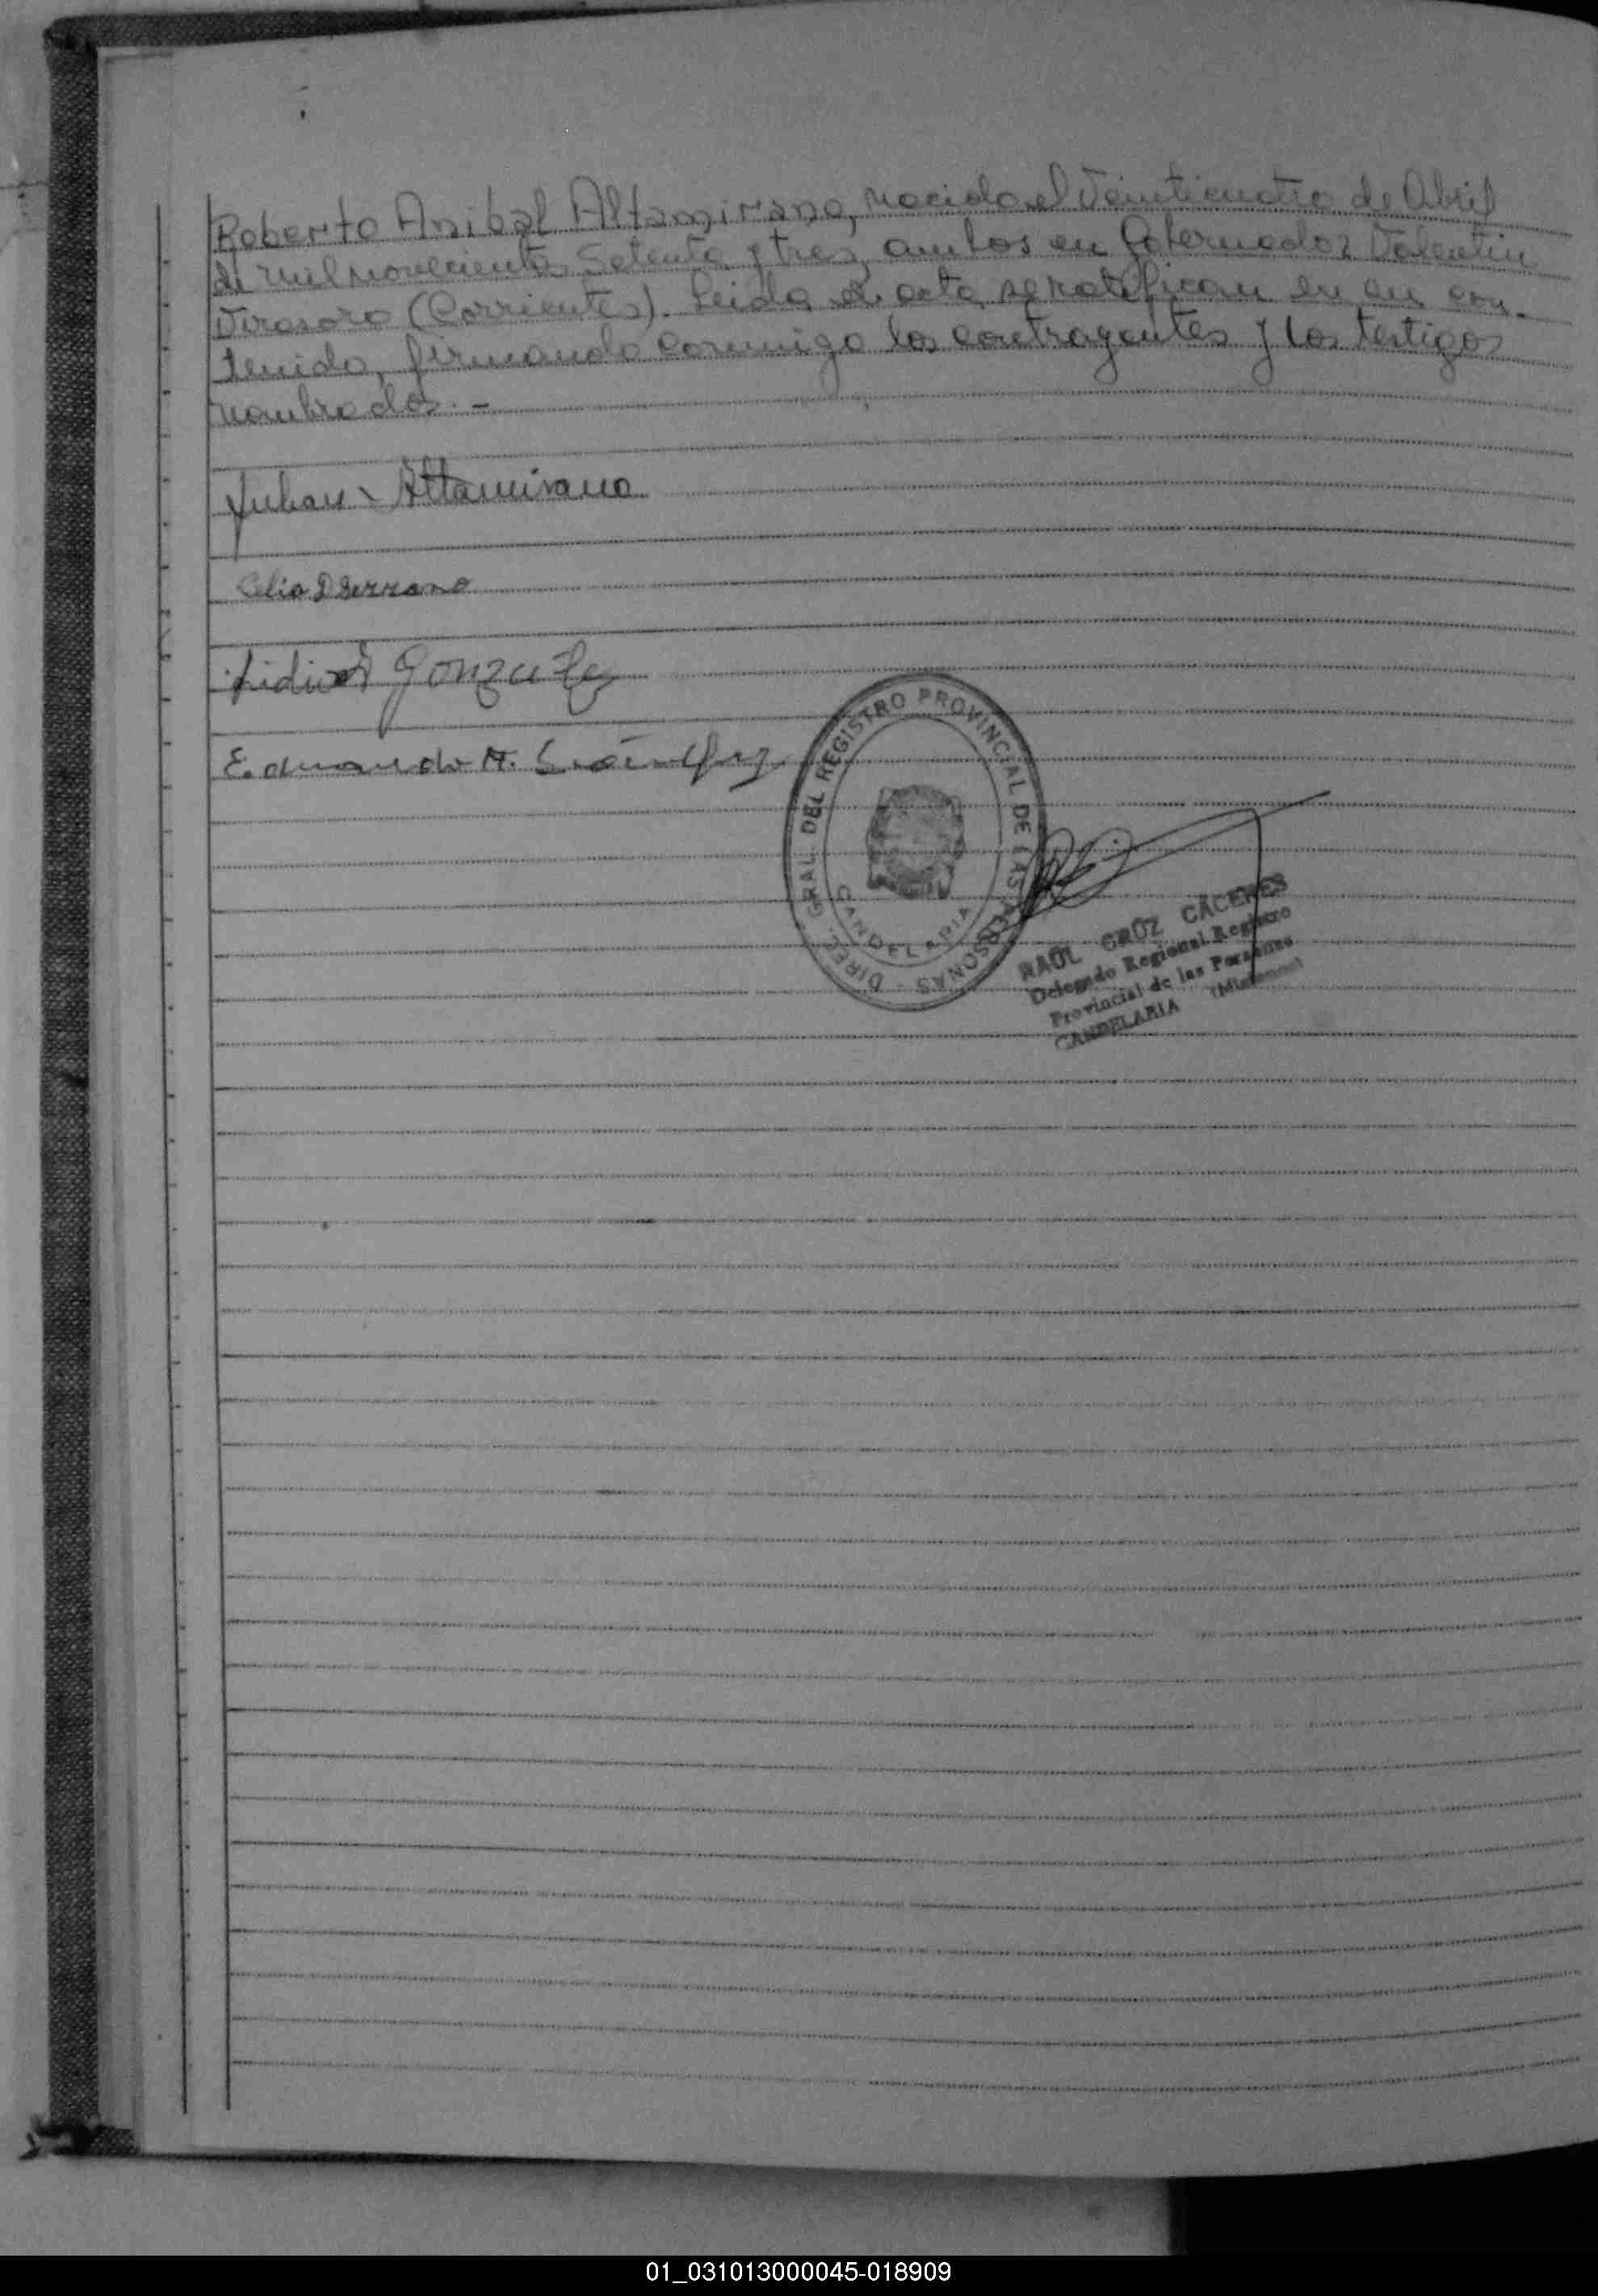 Roberto Anibal Altamirano, nacido el Veinticuatro de Abril
de mil novecientos Setenta y tres, ambos en Gobernador Valentin
Virasoro (Corrientes). Leida el acta, se ratifican en su con-
tenido, firmando conmigo los contrayentes y los testigos
nombrados. -
Julian Altamirano
Celia D Serrano
Lidia Gonzalez
Eduardo A.
DIREC. GRAL. DEL REGISTRO PROVINCIAL DE LAS PERSONAS
CANDELARIA
RAUL CRUZ CÁCERES
Delegado Regional Registro
Provincial de las Personas
CANDELARIA (Misiones)
01_031013000045-018909